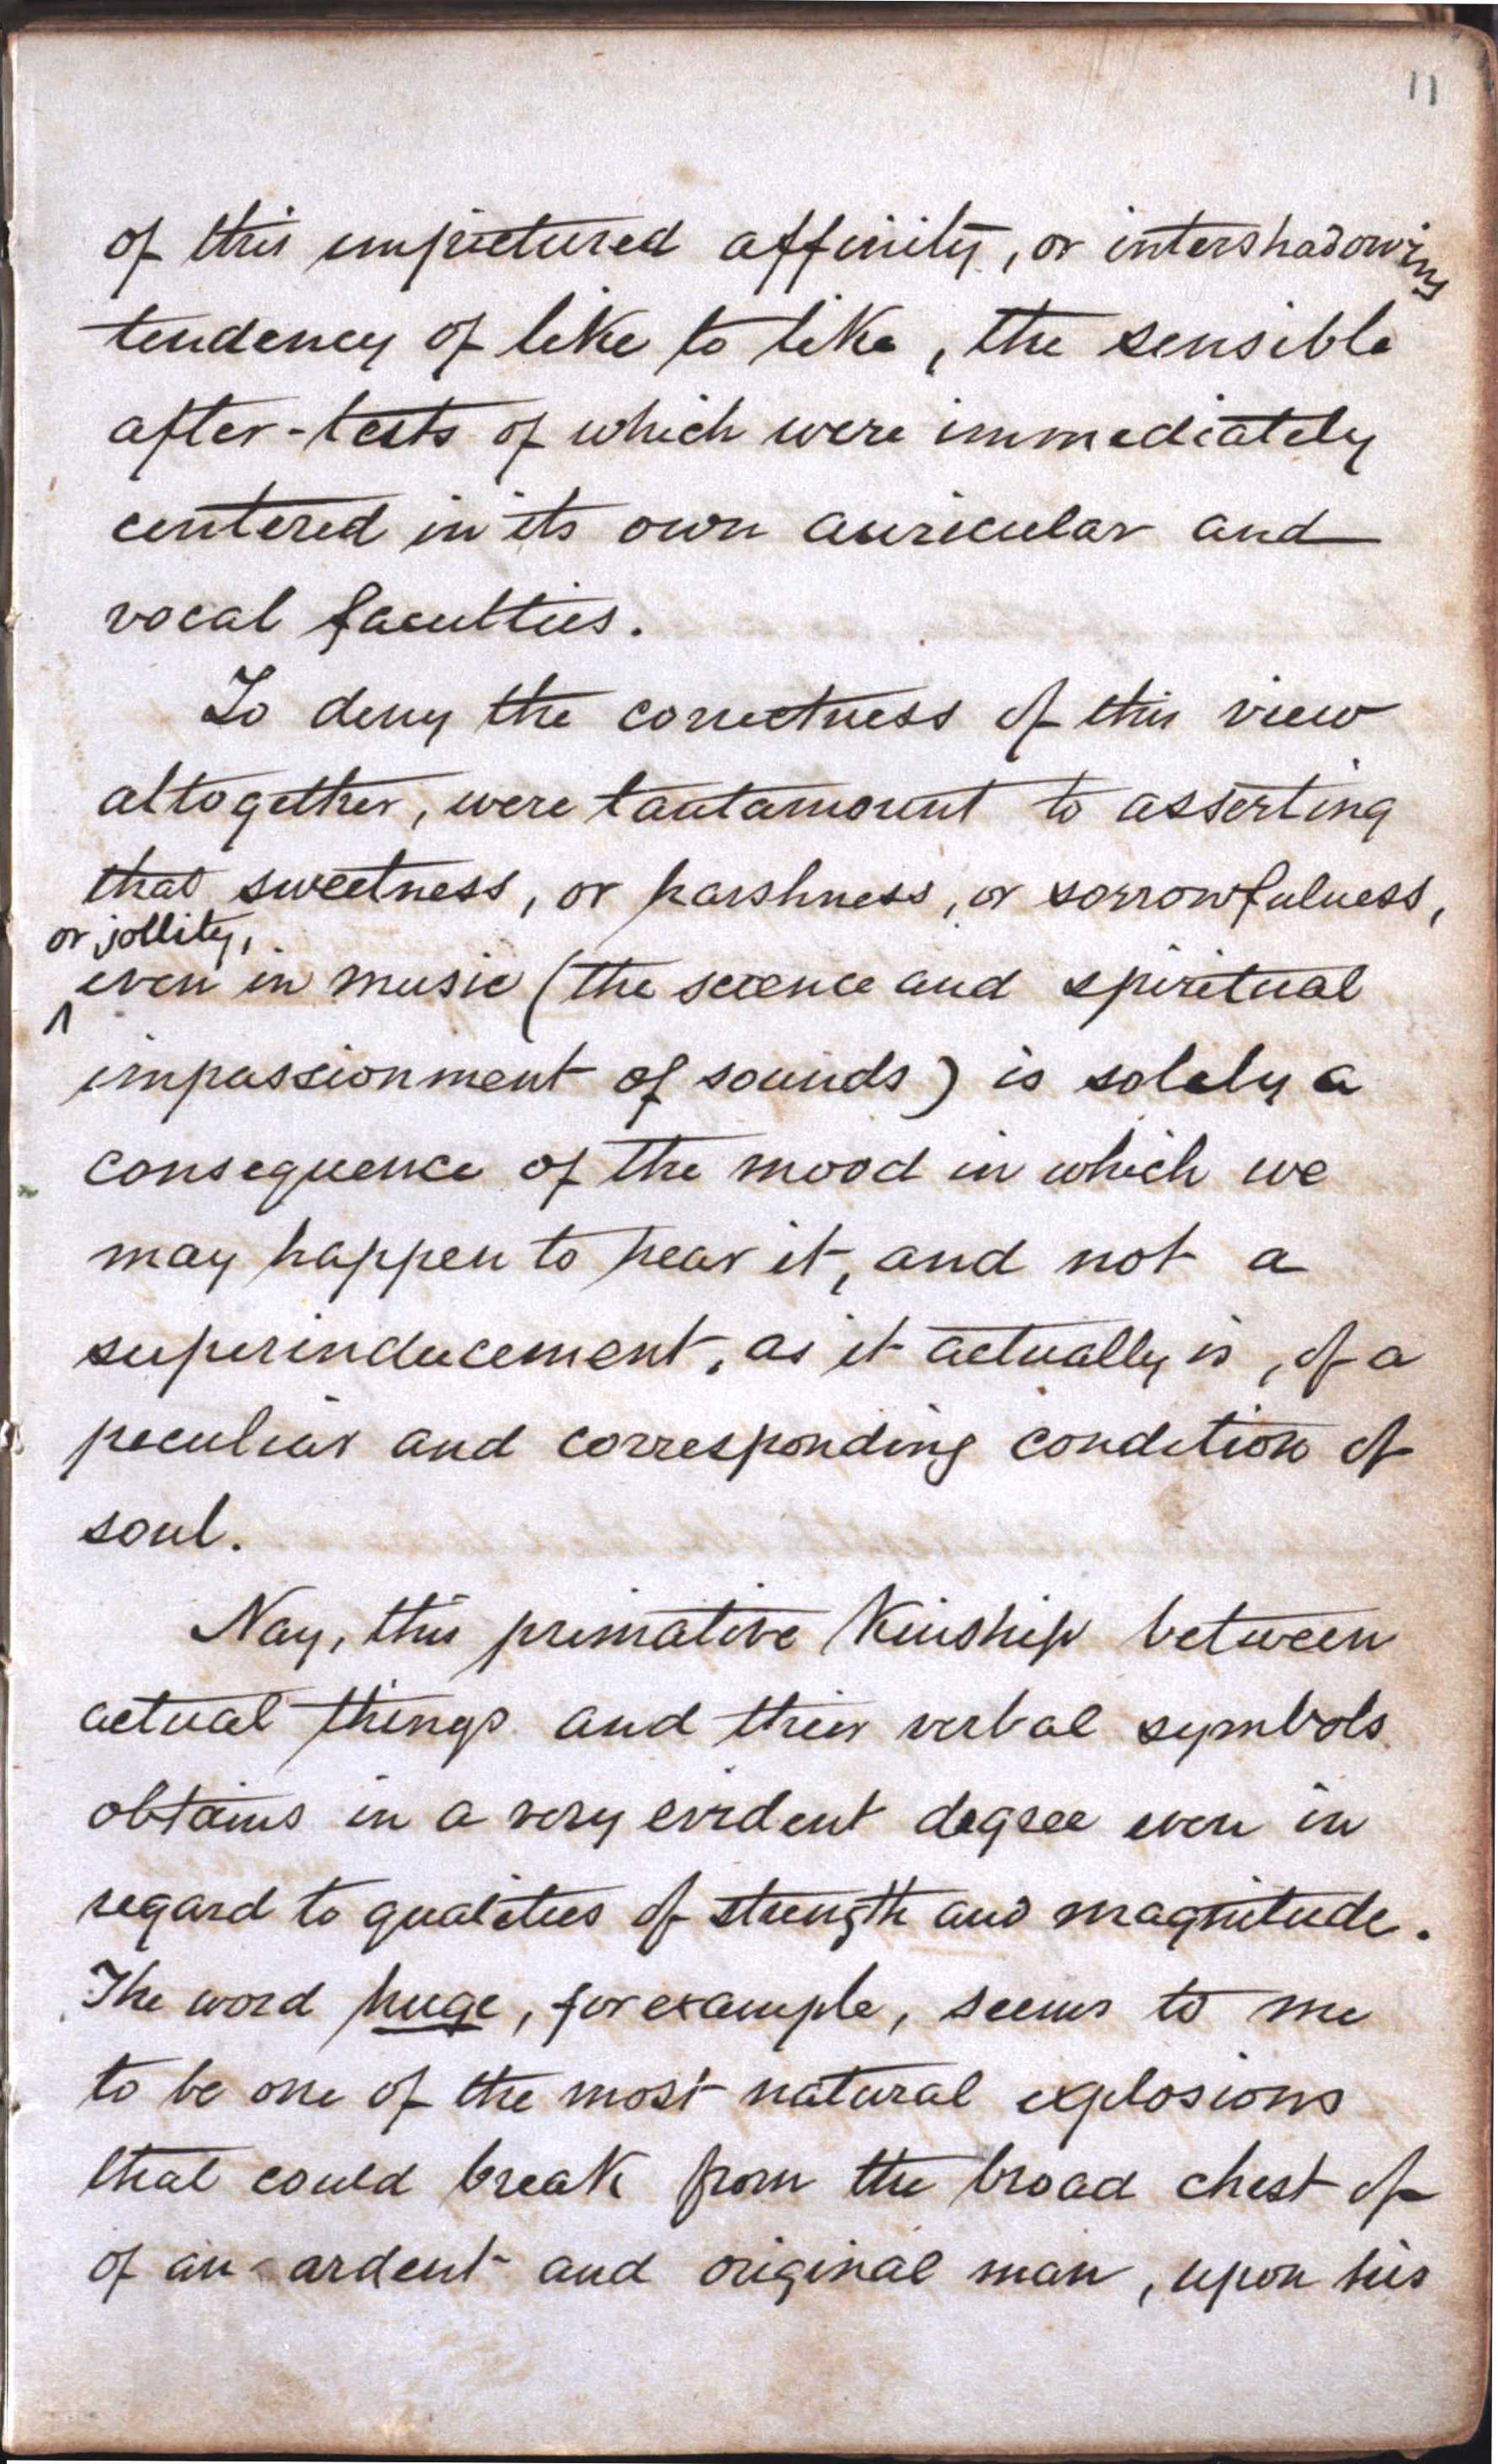 11
of this unpictured affinity, or intershadowing
tendency of like to like, the sensible
after-tests of which were immediately
centered in its own auricular and
vocal faculties.
To deny the correctness of this view
altogether, were tantamount to asserting
that sweetness, or harshness, or sorrowfulness,
or jollity,
^ even in music (the science and spiritual
impassionment of sounds) is solely a
consequence of the mood in which we
may happen to hear it, and not a
superinducement, as it actually is, of a
peculiar and corresponding condition of
soul.
Nay, this primative kinship between
actual things and their verbal symbols
obtains in a very evident degree even in
regard to qualities of strength and magnitude.
The word huge, for example, seems to me
to be one of the most natural explosions
that could break from the broad chest of
of an ardent and original man, upon his